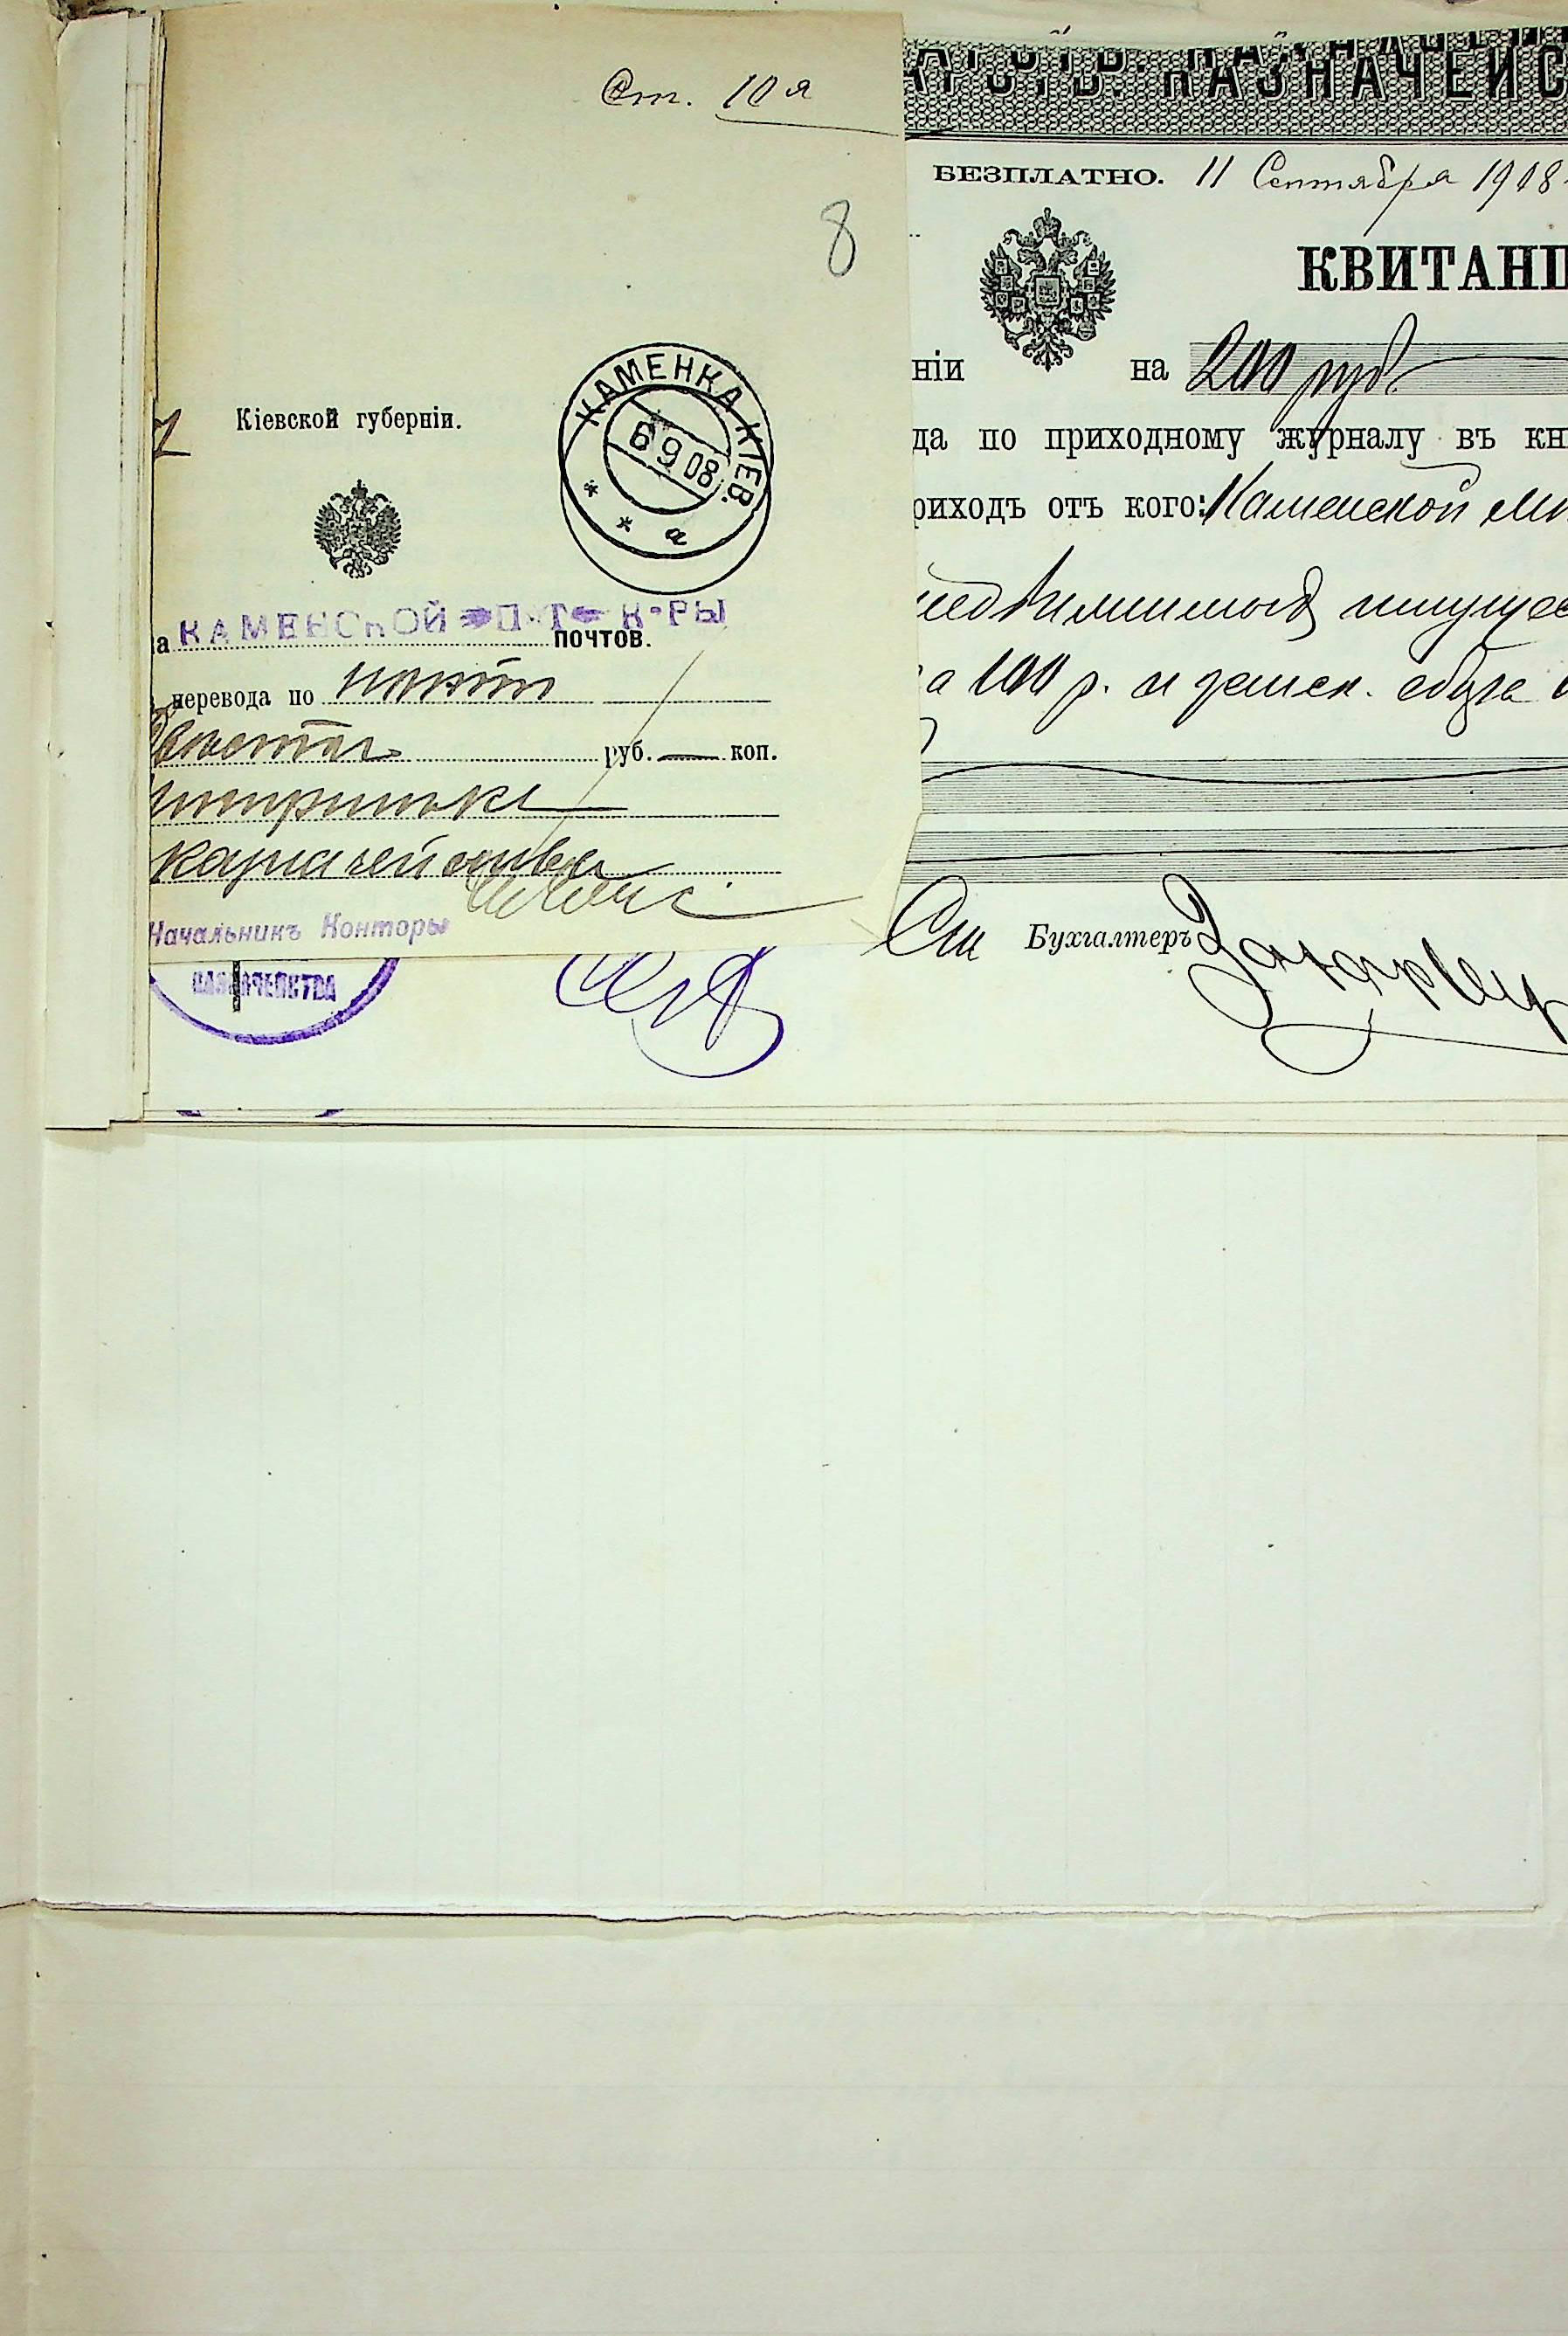 Ст. 10 я
8
Кіевской губерніи.
КАМЕНКА КІЕВ.
6 9 08
а
КАМЕНСКОЙ П-Т К-РЫ
почтов.
перевода по почтѣ
Двѣсти руб. — коп.
казначейства
Начальникъ Конторы
КАЗНАЧЕЙСТВА
КАЗНАЧЕЙС
БЕЗПЛАТНО. 11 Сентября 1908
КВИТАНЦ
ніи на 200 руб.
да по приходному журналу въ кн
риходъ отъ кого: Каменской
недвижимыхъ имуще
а 100 р. и земск. сбора
Бухгалтеръ